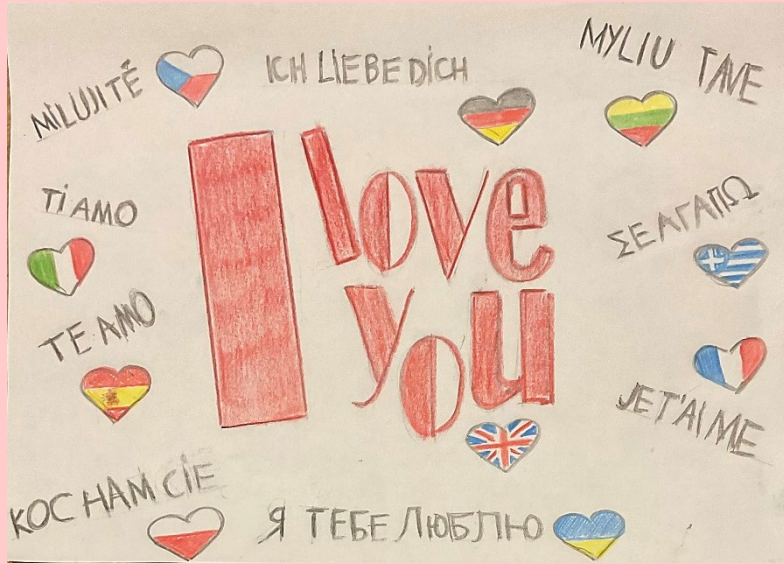 MILUJI TĚ
ICH LIEBE DICH
MYLIU TAVE
TI AMO
I love
you
ΣΕ ΑΓΑΠΩ
TE AMO
JE T'AIME
KOCHAM CIE
Я ТЕБЕ ЛЮБЛЮ